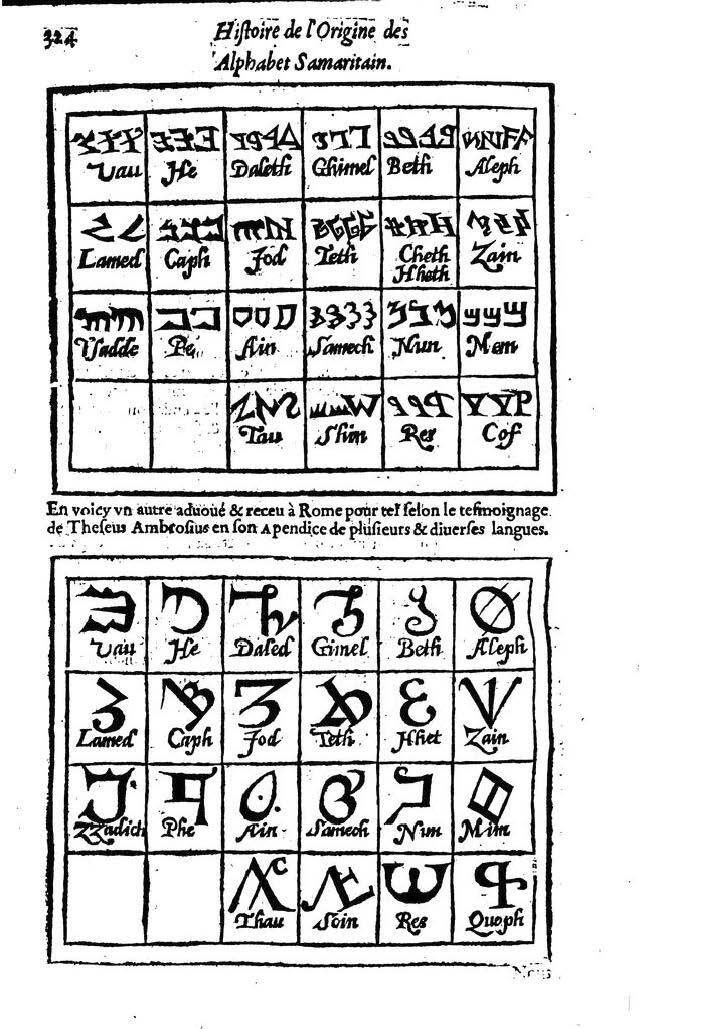 324
Histoire de l'Origine des
Alphabet Samaritain.
Vau He Daleth Ghimel Beth Aleph
Lamed Caph Jod Teth Cheth Zain
Hhath
Tsadde Pe Ain Samech Nun Mem
Tau Shin Res Cof
En voicy vn autre aduoué & receu à Rome pour tel selon le tesmoignage
de Theseus Ambrosius en son Apendice de plusieurs & diuerses langues.
Vau He Daled Gimel Beth Aleph
Lamed Caph Jod Teth Hhet Zain
ZZadich Phe Ain Samech Nun Mim
Thau Soin Res Quoph
Nous